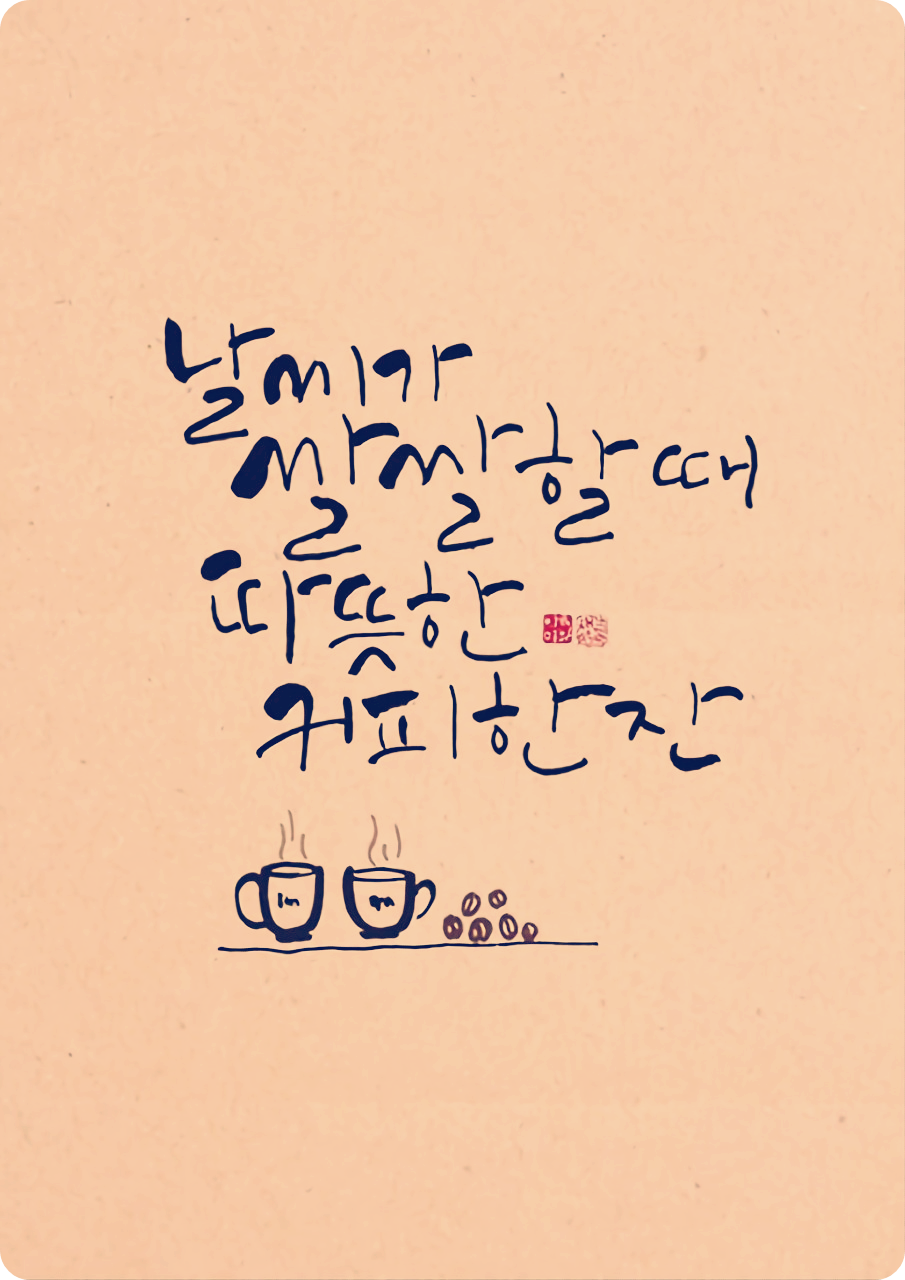 날씨가
쌀쌀할 때
따뜻한
커피 한 잔